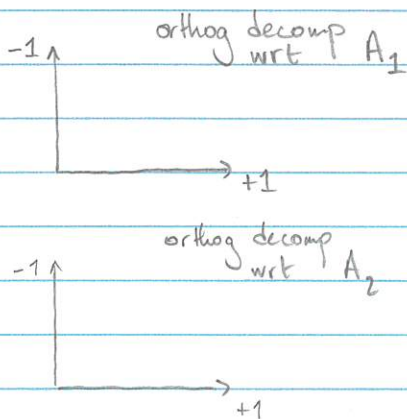 orthog decomp
wrt A₁
-1
+1
orthog decomp
wrt A₂
-1
+1